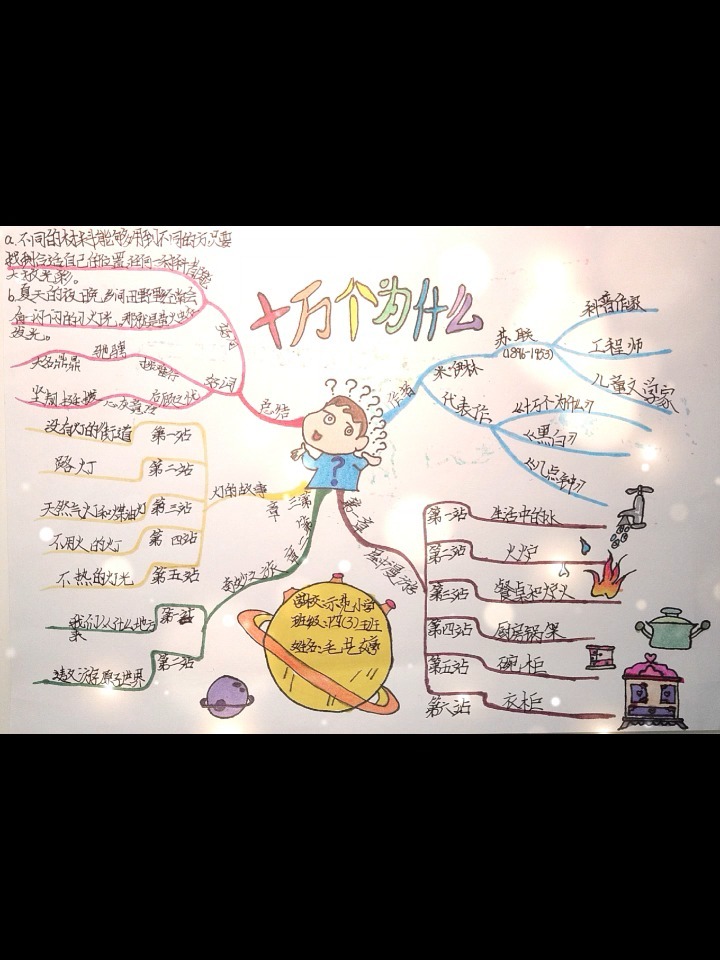 a.不同的材料能够用到不同的方,只要
找到合适自己的位置,任何一种材料都能
大放光彩。
b.夏天的夜晚,乡间田野里经常会
有闪闪的小火光,那就是萤火虫在
发光。
十万个为什么
作者
米·伊林
苏联
(1896-1953)
科普作家
工程师
儿童文学家
代表作
《十万个为什么》
《黑白》
《几点钟》
好词
大名鼎鼎
驰骋
坚韧
后顾之忧
总结
第三章
灯的故事
第一站
没有灯的街道
第二站
路灯
第三站
天然气灯和煤油灯
第四站
不用火的灯
第五站
不热的灯光
第二章
奇妙之旅
第一站
我们从什么地方
来
第二站
原子世界
第一章
室内漫游
第一站
生活中的水
第二站
火炉
第三站
餐桌和炉火
第四站
厨房锅
第五站
碗柜
第六站
衣柜
学校:示范小学
班级:四(3)班
姓名:毛